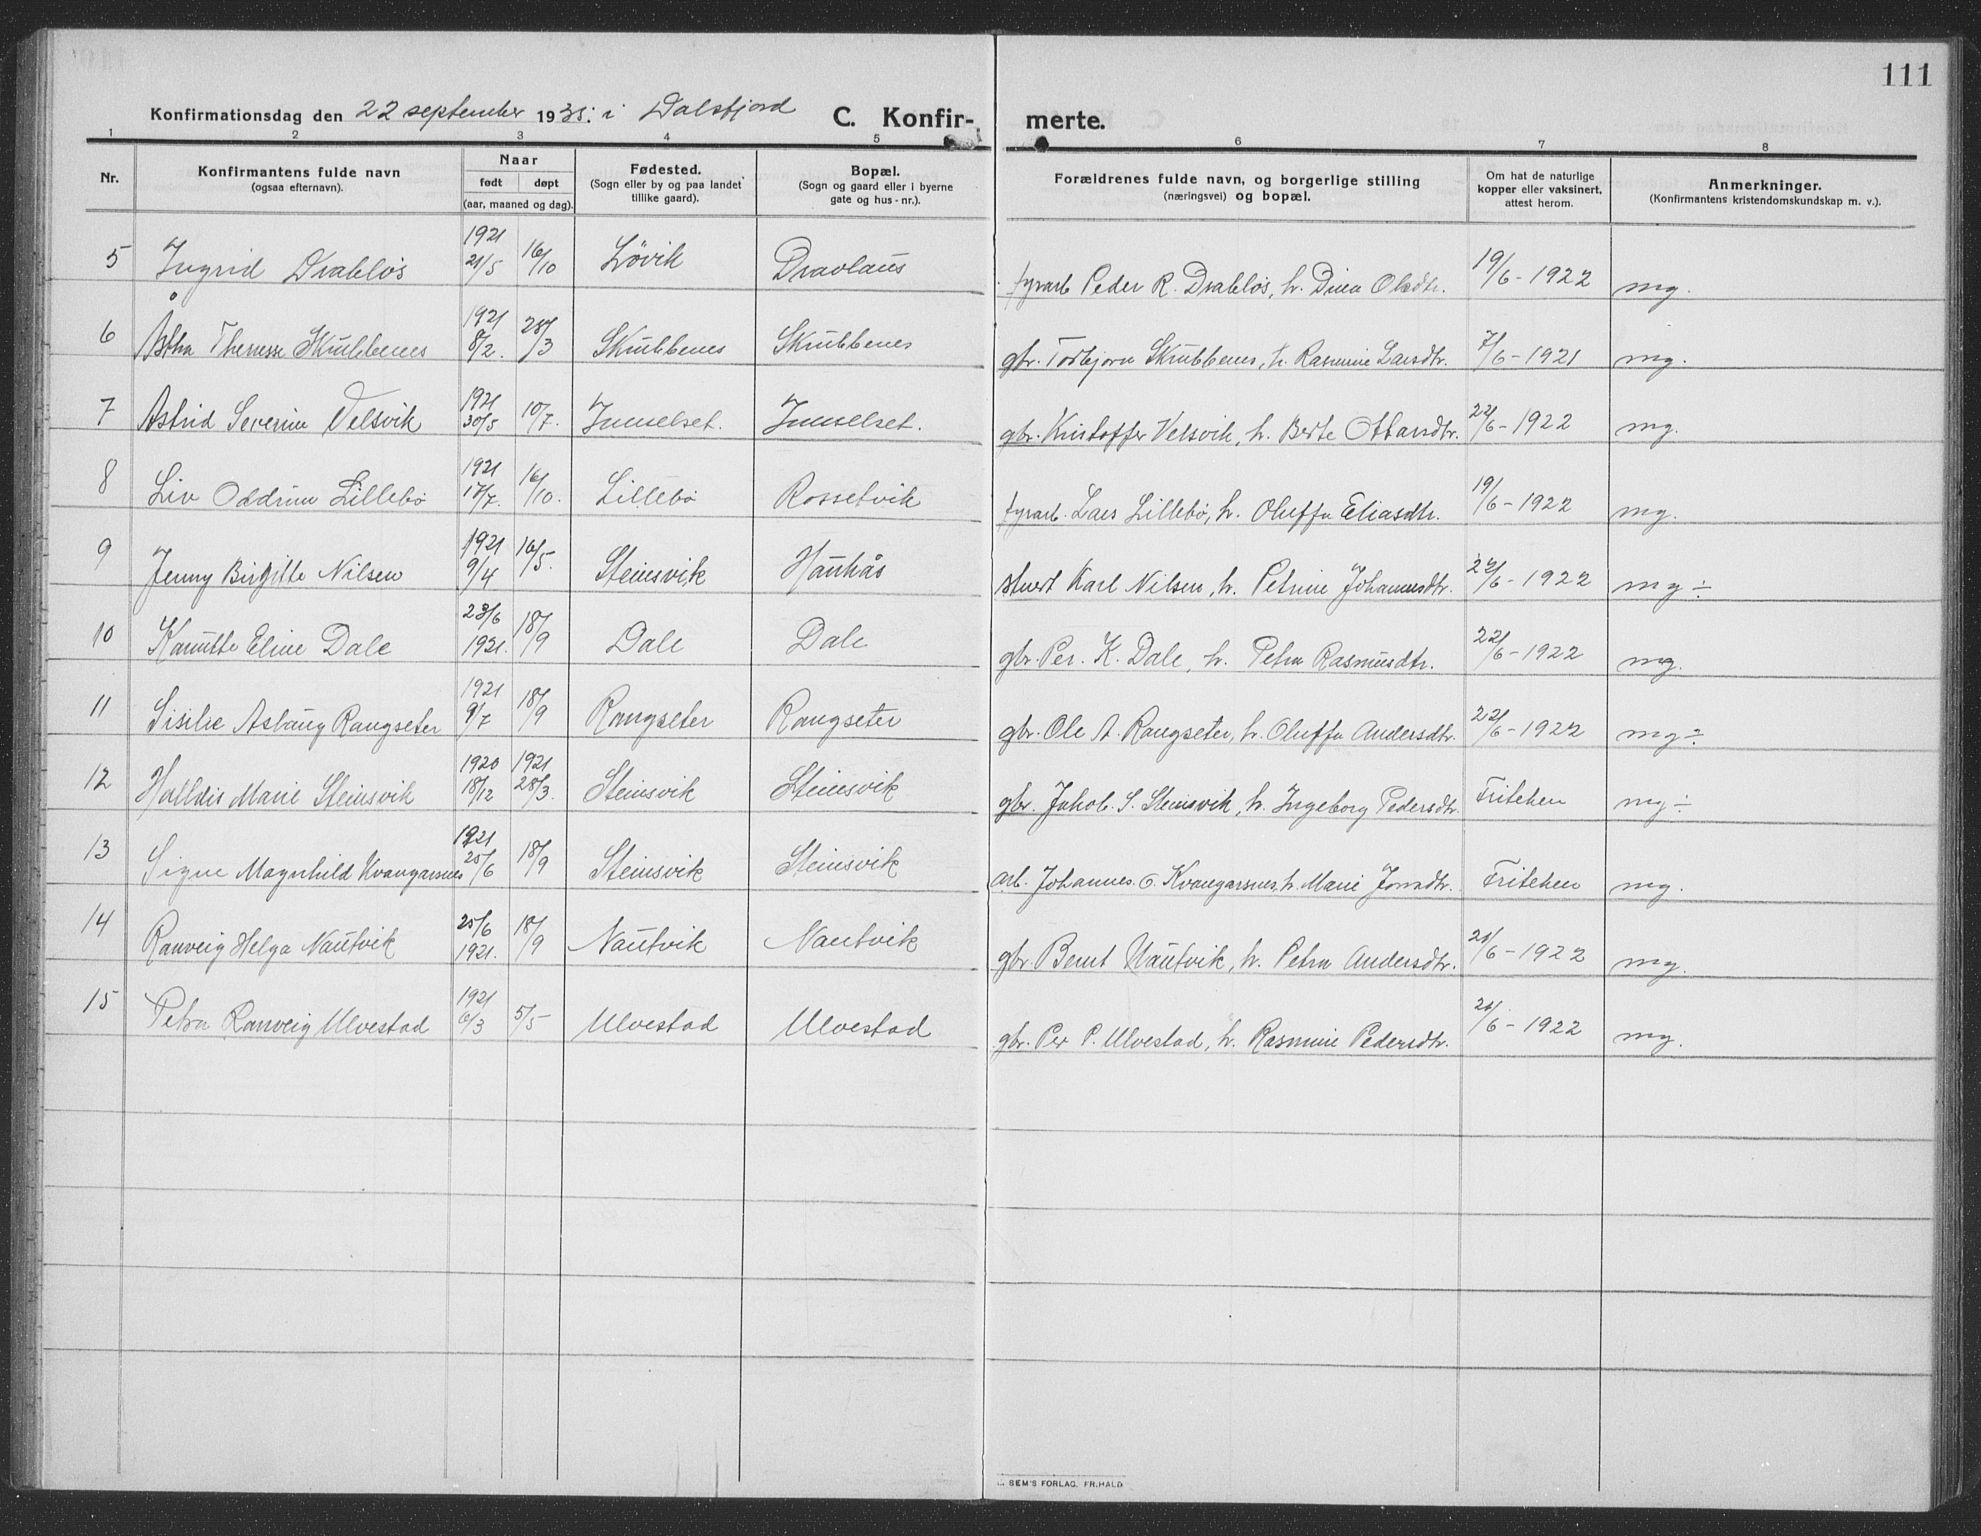 111
Konfirmationsdag den 22 september 1935. i Dalsfjord
C. Konfir- merte.
1 2 3 4 5 6 7 8
Nr.
Konfirmantens fulde navn
(ogsaa efternavn).
Naar
født døpt
(aar, maaned og dag).
Fødested.
(Sogn eller by og paa landet
tillike gaard).
Bopæl.
(Sogn og gaard eller i byerne
gate og hus-nr.).
Forældrenes fulde navn, og borgerlige stilling
(næringsvei) og bopæl.
Om hat de naturlige
kopper eller vaksinert,
attest herom.
Anmerkninger.
(Konfirmantens kristendomskundskap m. v.).
5 Ingrid Drabløs 1921 21/5 16/10 Løvik Dravlaus fyrarb. Peder R. Drabløs, h. Dina Olsdtr. 19/6-1922 mg.
6 Therese Skubbenes 1921 8/2. 28/3 Skubbenes Skubbenes gbr. Torbjørn Skubbenes, h. Rasmine Larsdtr. 7/6-1921 mg.
7 Astrid Severine Velsvik 1921 30/5 10/7. Innselset. Innselset. gbr. Kristoffer Velsvik, h. Berte Ottarsdtr. 22/6-1922 mg.
8 Liv Oddrun Lillebø 1921 17/7. 16/10. Lillebø Rossetvik fyrarb. Lars Lillebø, h. Oluffa Eliasdtr. 19/6-1922 mg.
9 Jenny Birgitte Nilsen 1921 9/4 16/5. Steinsvik Hauhås stuert Karl Nilsen, h. Petrine Johannesdtr. 22/6-1922 mg ÷
10 Kanutte Eline Dale 23/6 1921. 18/9 Dale Dale gbr. Per. K. Dale, h. Petra Rasmusdtr. 22/6-1922 mg.
11 Sisilie Aslaug Rangseter 1921 9/7 18/9 Rangseter Rangseter gbr. Ole A. Rangseter, h. Oluffa Andersdtr. 22/6-1922 mg ÷
12 Halldis Marie Steinsvik 1920 18/12 1921 28/3. Steinsvik Steinsvik gbr. Jakob. S. Steinsvik, h. Ingeborg Pedersdtr. Fritehen mg ÷
13 Signe Magnhild Kvangarsnes 1921 25/6 18/9 Steinsvik Steinsvik arb. Johannes O. Kvangarsnes h. Marie Jonsdtr. Fritehen mg.
14 Ranveig Helga Nautvik 25/6 1921. 18/9 Nautvik Nautvik gbr. Bernt Nautvik, h. Petra Andersdtr. 20/6-1922 mg.
15 Petra Ranveig Ulvestad 1921 6/3 5/5 Ulvestad Ulvestad gbr. Per P. Ulvestad, h. Rasmine Pedersdtr. 20/6-1922 mg.
SEM'S FORLAG, FR.HALD